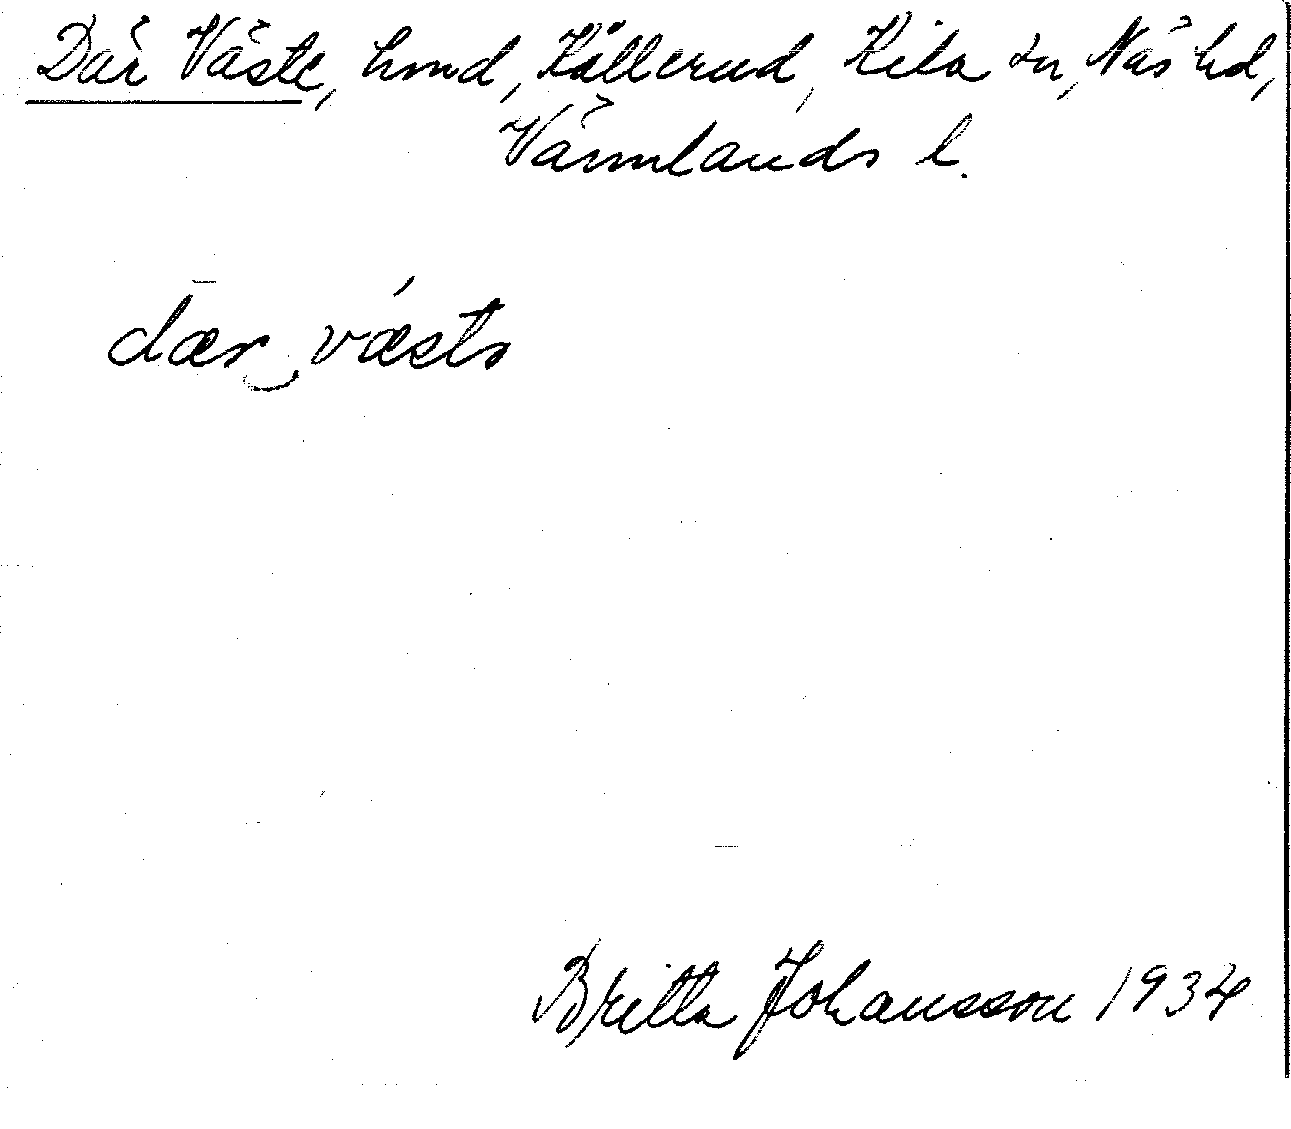 Där Väste, hmd, Källerud, Kila sn, Näs hd,
Värmlands l.
dær væstə
Britta Johansson 1934